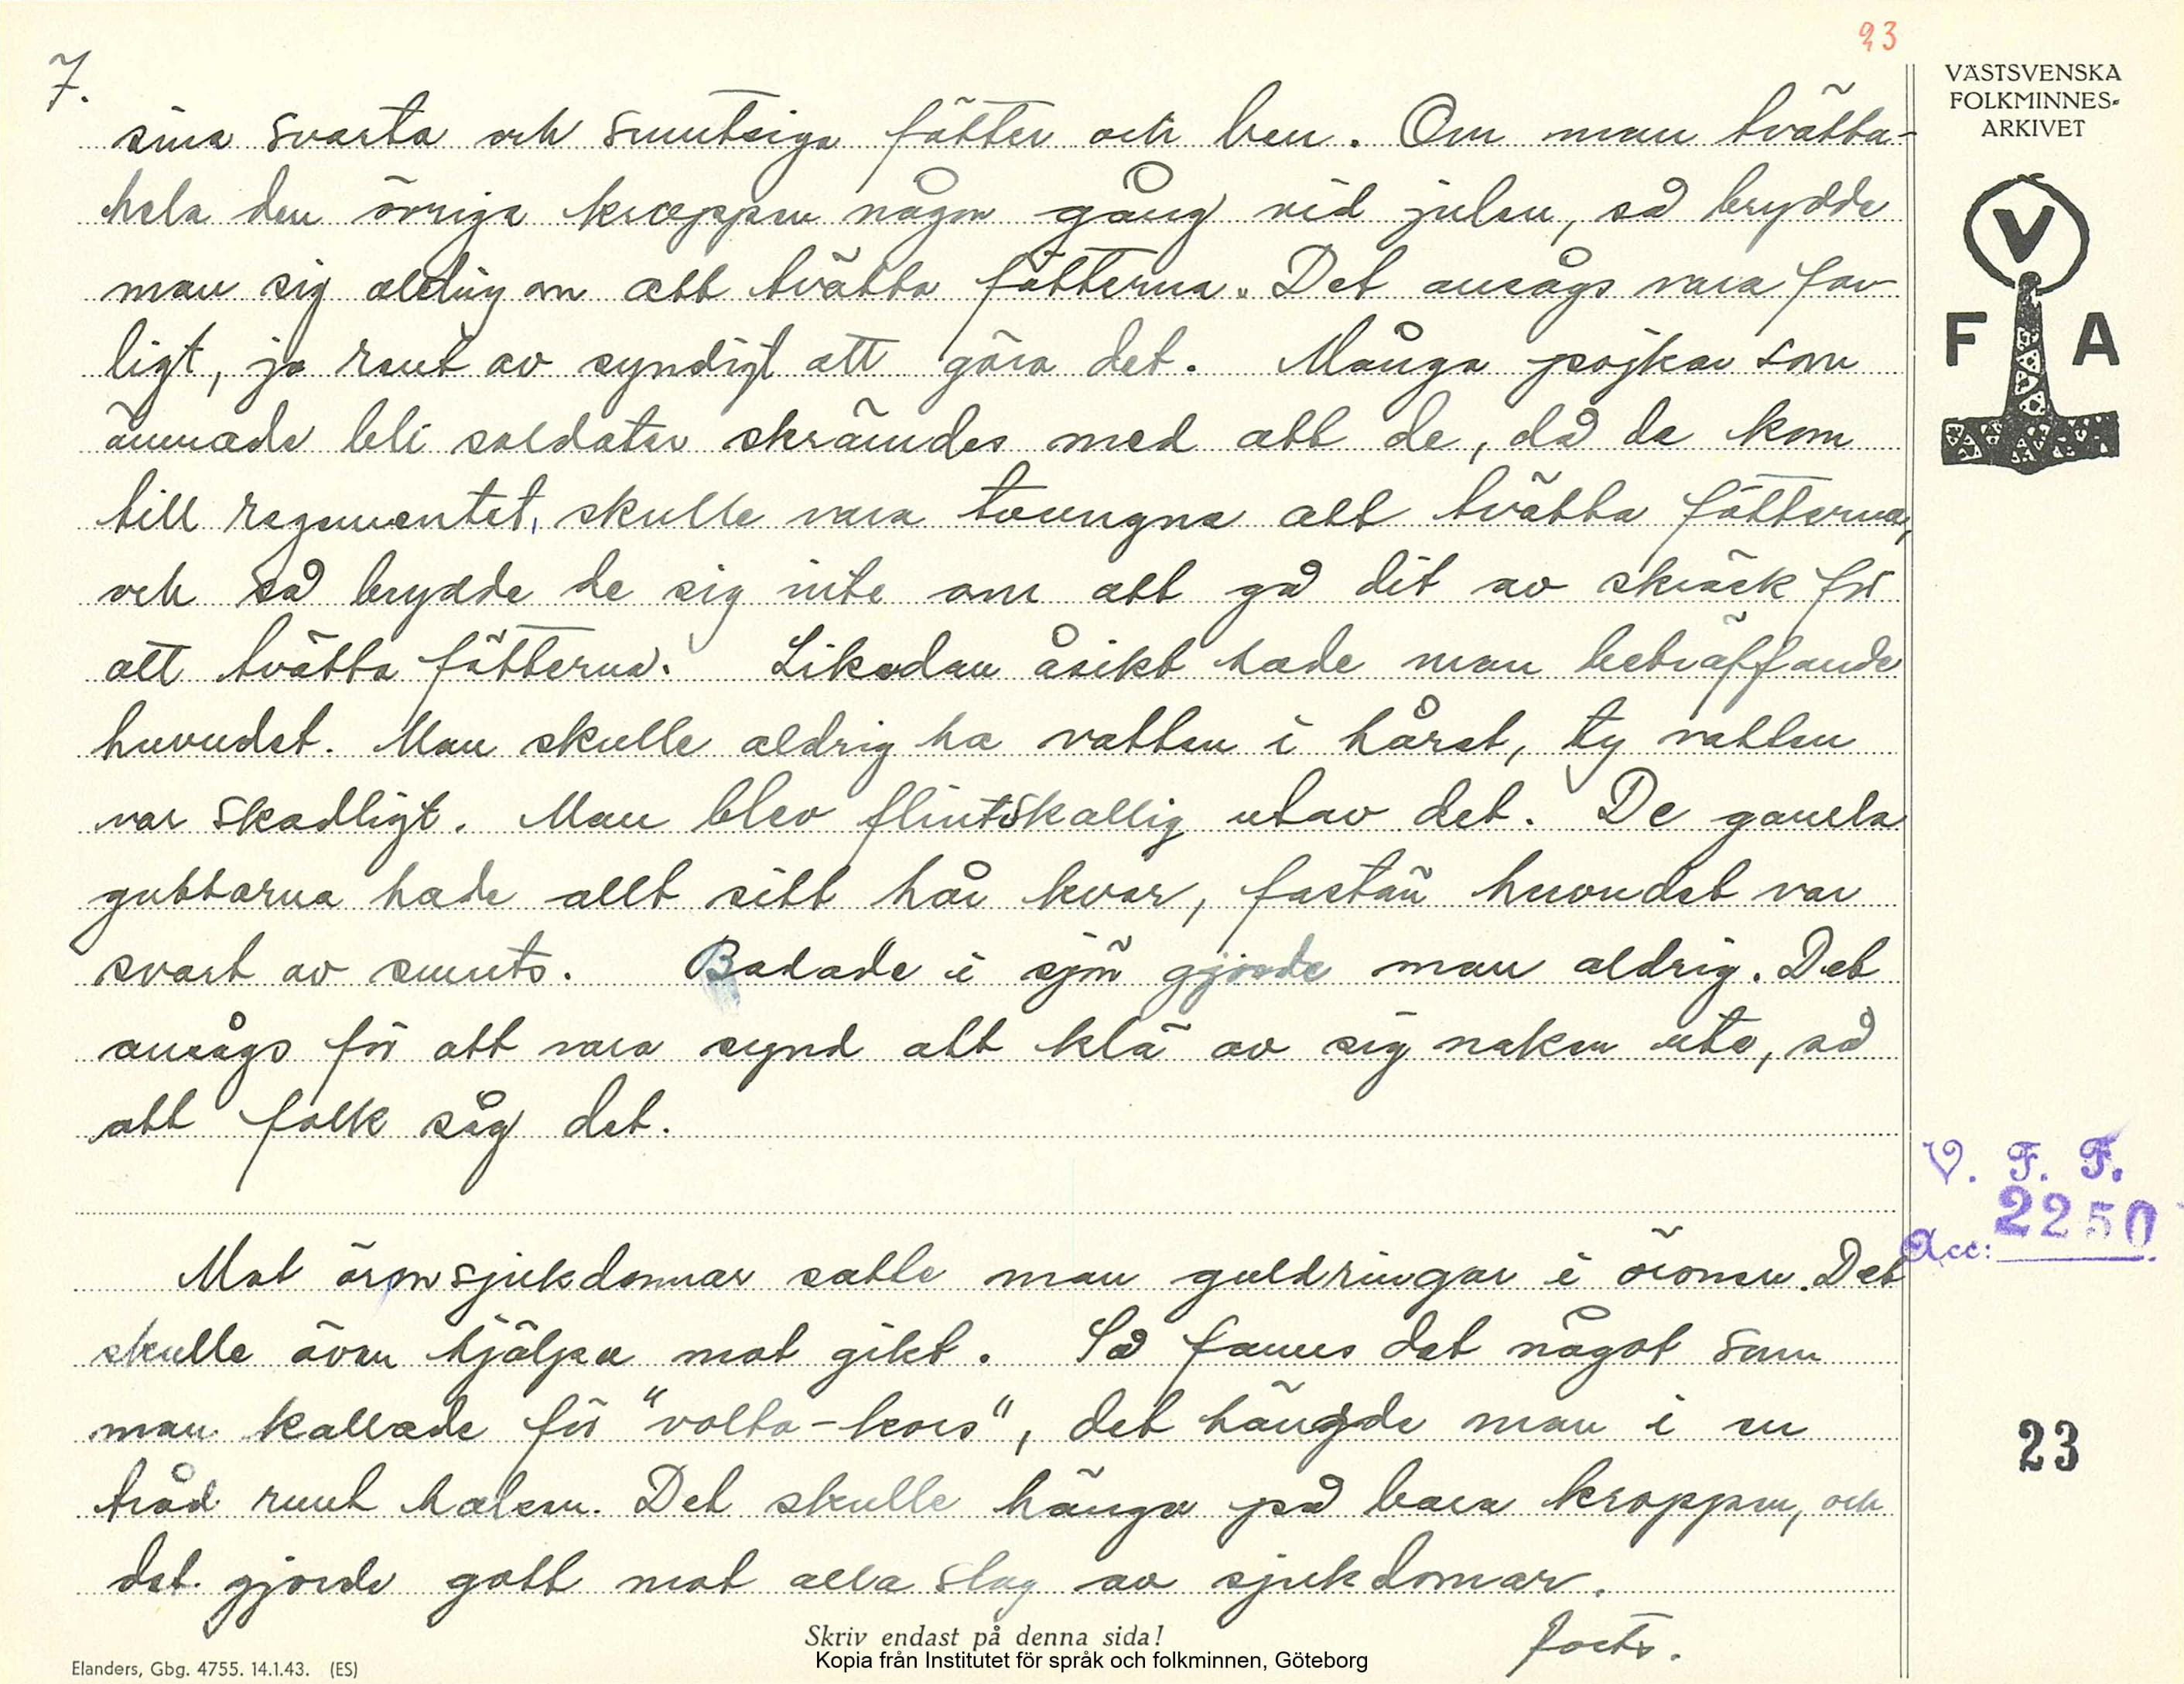 23
7.
VÄSTSVENSKA
FOLKMINNES-
ARKIVET
sina svarta och smutsiga fötter och ben. Om man tvätta-
hela den övriga kroppen någon gång vid julen, så brydde
man sig aldrig om att tvätta fötterna. Det ansågs vara far-
ligt, ja rent av syndigt att göra det. Många pojkar som
ämnade bli soldater skrämdes med att de, då de kom
till regementet, skulle vara tvungna att tvätta fötterna,
och så brydde de sig inte om att gå dit av skräck för
att tvätta fötterna. Likadan åsikt hade man beträffande
huvudet. Man skulle aldrig ha vatten i håret, ty vatten
var skadligt. Man blev flintskallig utav det. De gamla
gubbarna hade allt sitt hår kvar, fastän huvudet var
svart av smuts. Badade i sjön gjorde man aldrig. Det
ansågs för att vara synd att klä av sig naken ute, så
att folk såg det.
V
F A
V. F. F.
Acc: 2250
Mot öronsjukdomar satte man guldringar i öronen. Det
skulle även hjälpa mot gikt. Så fanns det något som
man kallade för "volta-kors", det hängde man i en
tråd runt halsen. Det skulle hänga på bara kroppen, och
det gjorde gott mot alla slag av sjukdomar.
23
Forts.
Skriv endast på denna sida!
Kopia från Institutet för språk och folkminnen, Göteborg
Elanders, Gbg. 4755. 14.1.43. (ES)